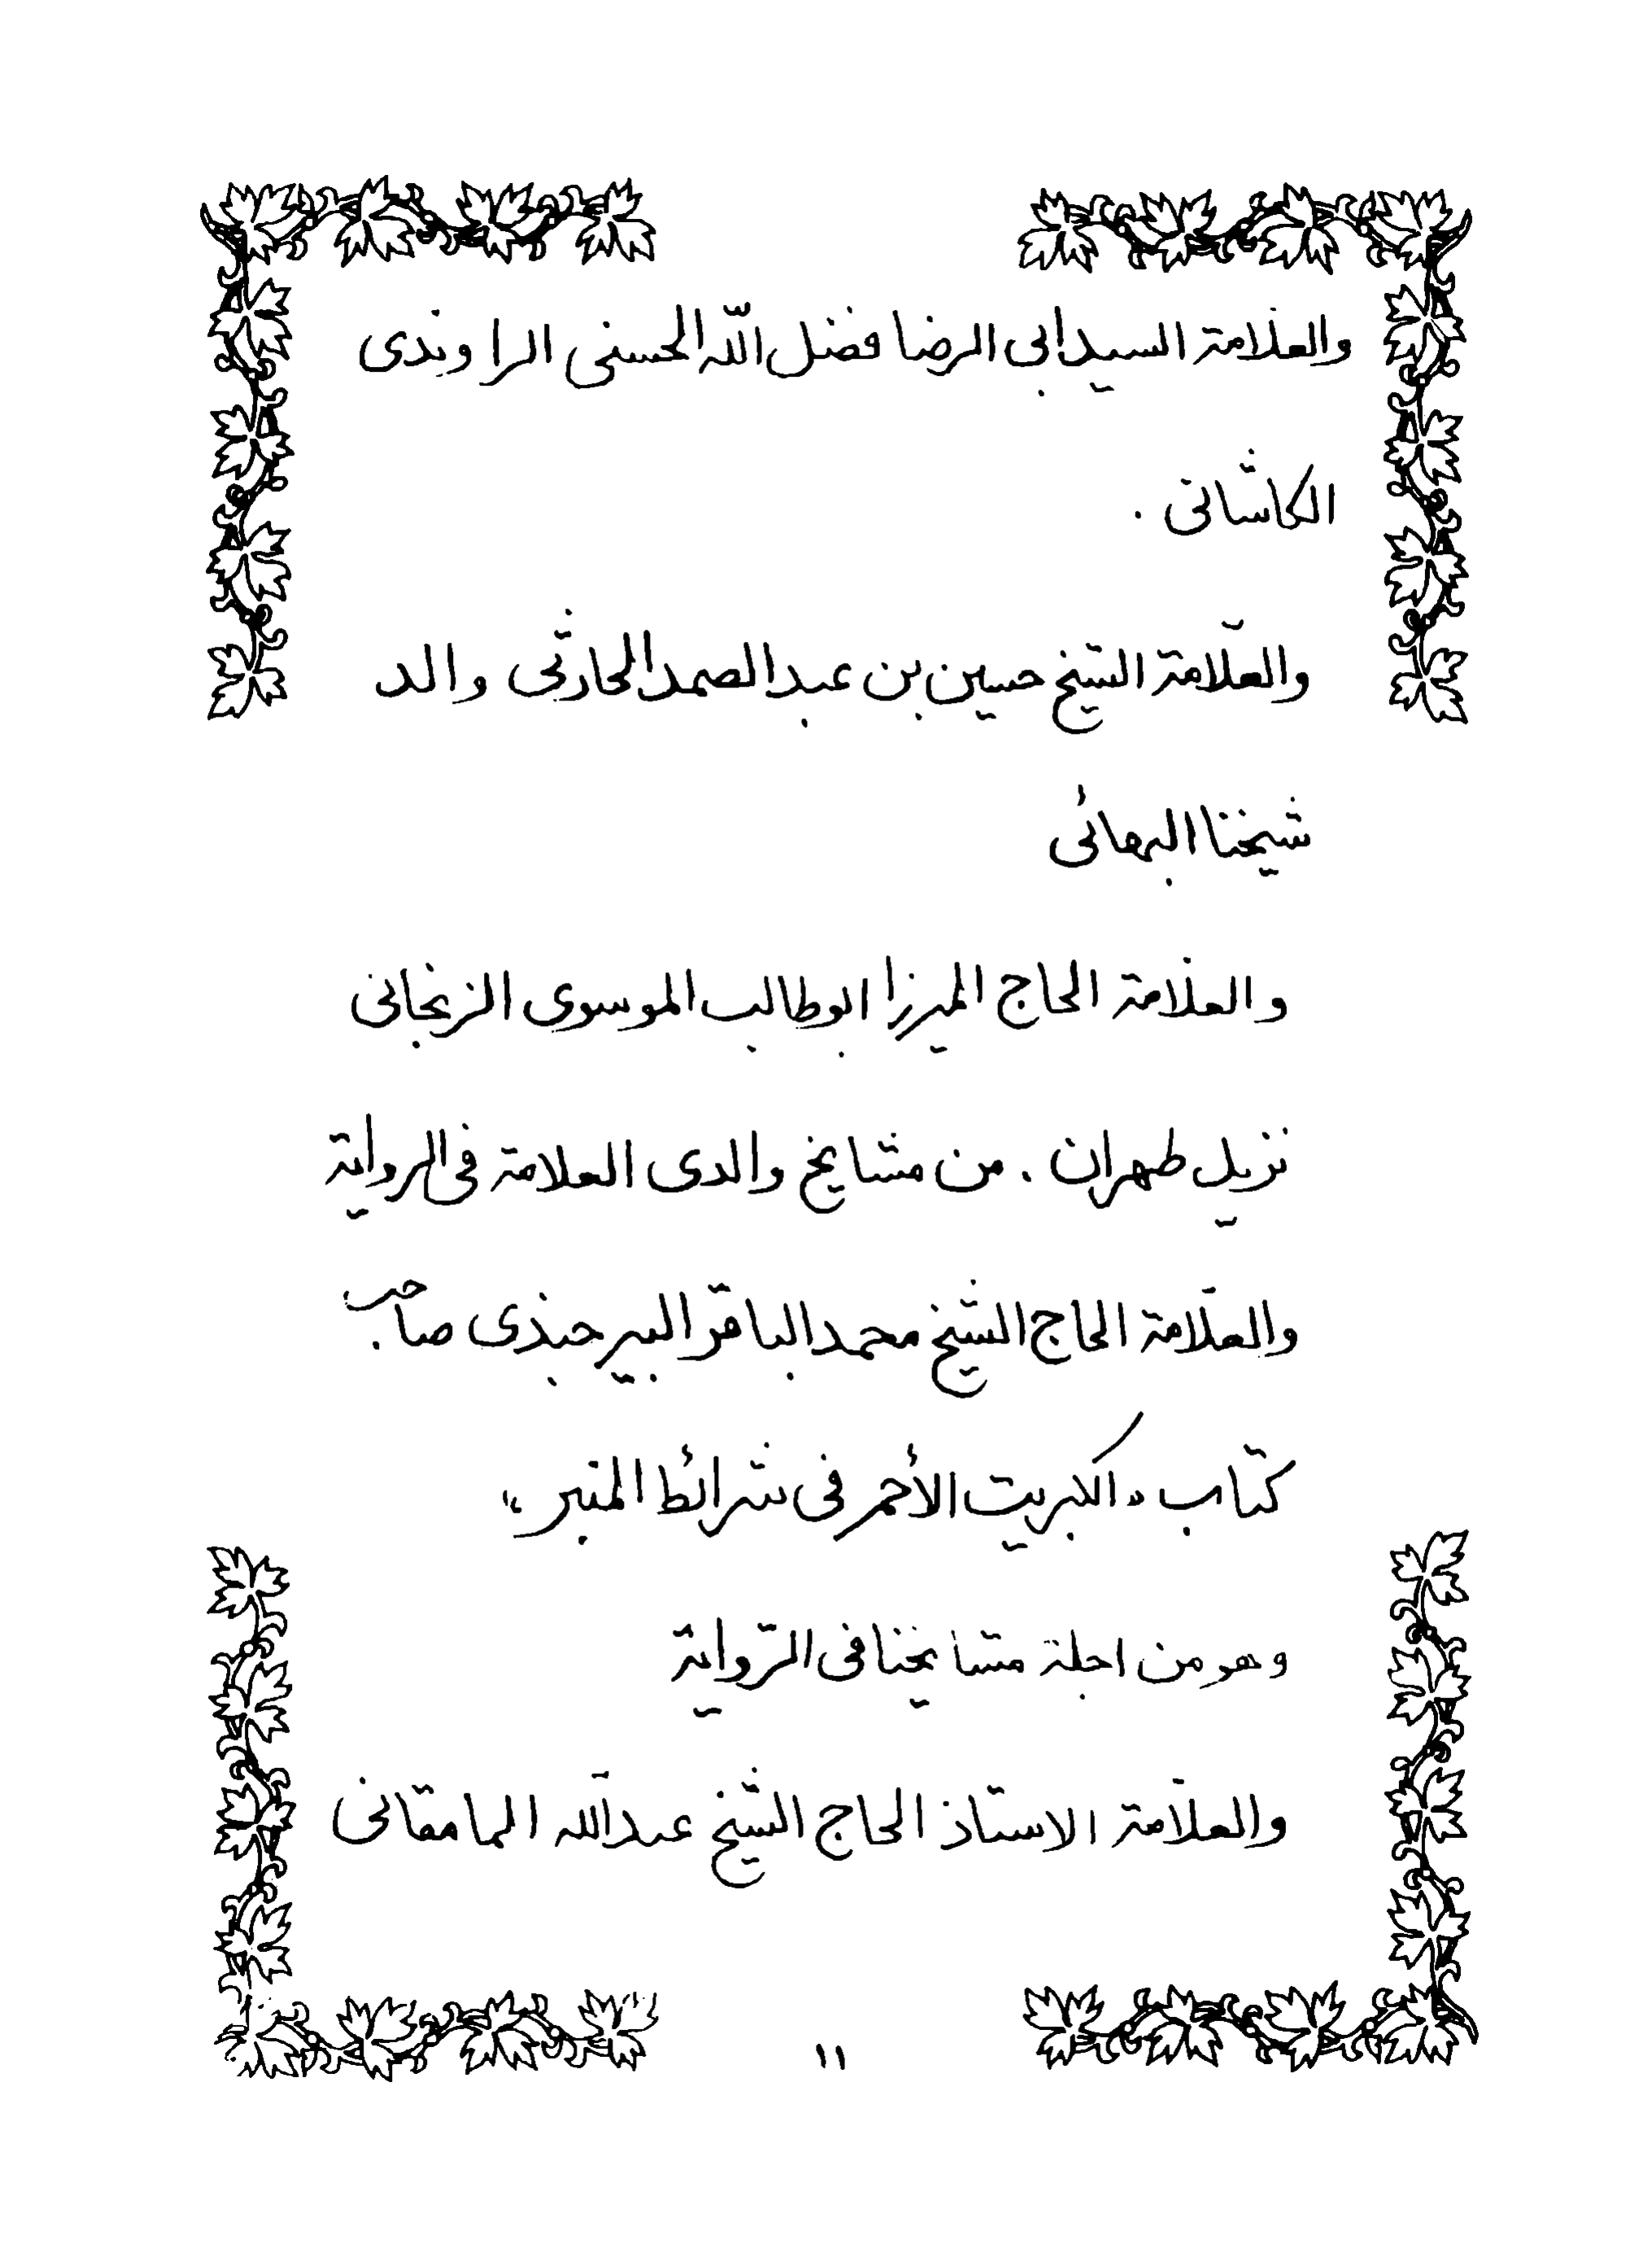 والعلامة السيد ابى الرضا فضل اللّه الحسنى الراوندى
الكاشانى .
والعلّامة الشيخ حسين بن عبد الصمد الحارثى والد
شيخنا البهائى
والعلامة الحاج الميرزا ابوطالب الموسوى الزنجانى
نزيل طهران . من مشايخ والدى العلامة فى الرواية
والعلّامة الحاج الشيخ محمد الباقر البيرجندى صاحب
كتاب «اكبريت الأحمر فى شرائط المنبر»
وهو من اجلة مشايخنا فى الرّواية
والعلّامة الاستاذ الحاج الشيخ عبداللّه المامقانى
١١